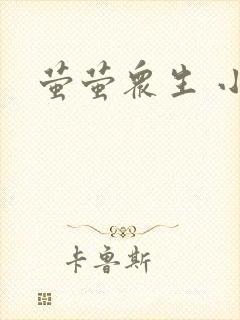 萤萤众生 小
卡鲁斯